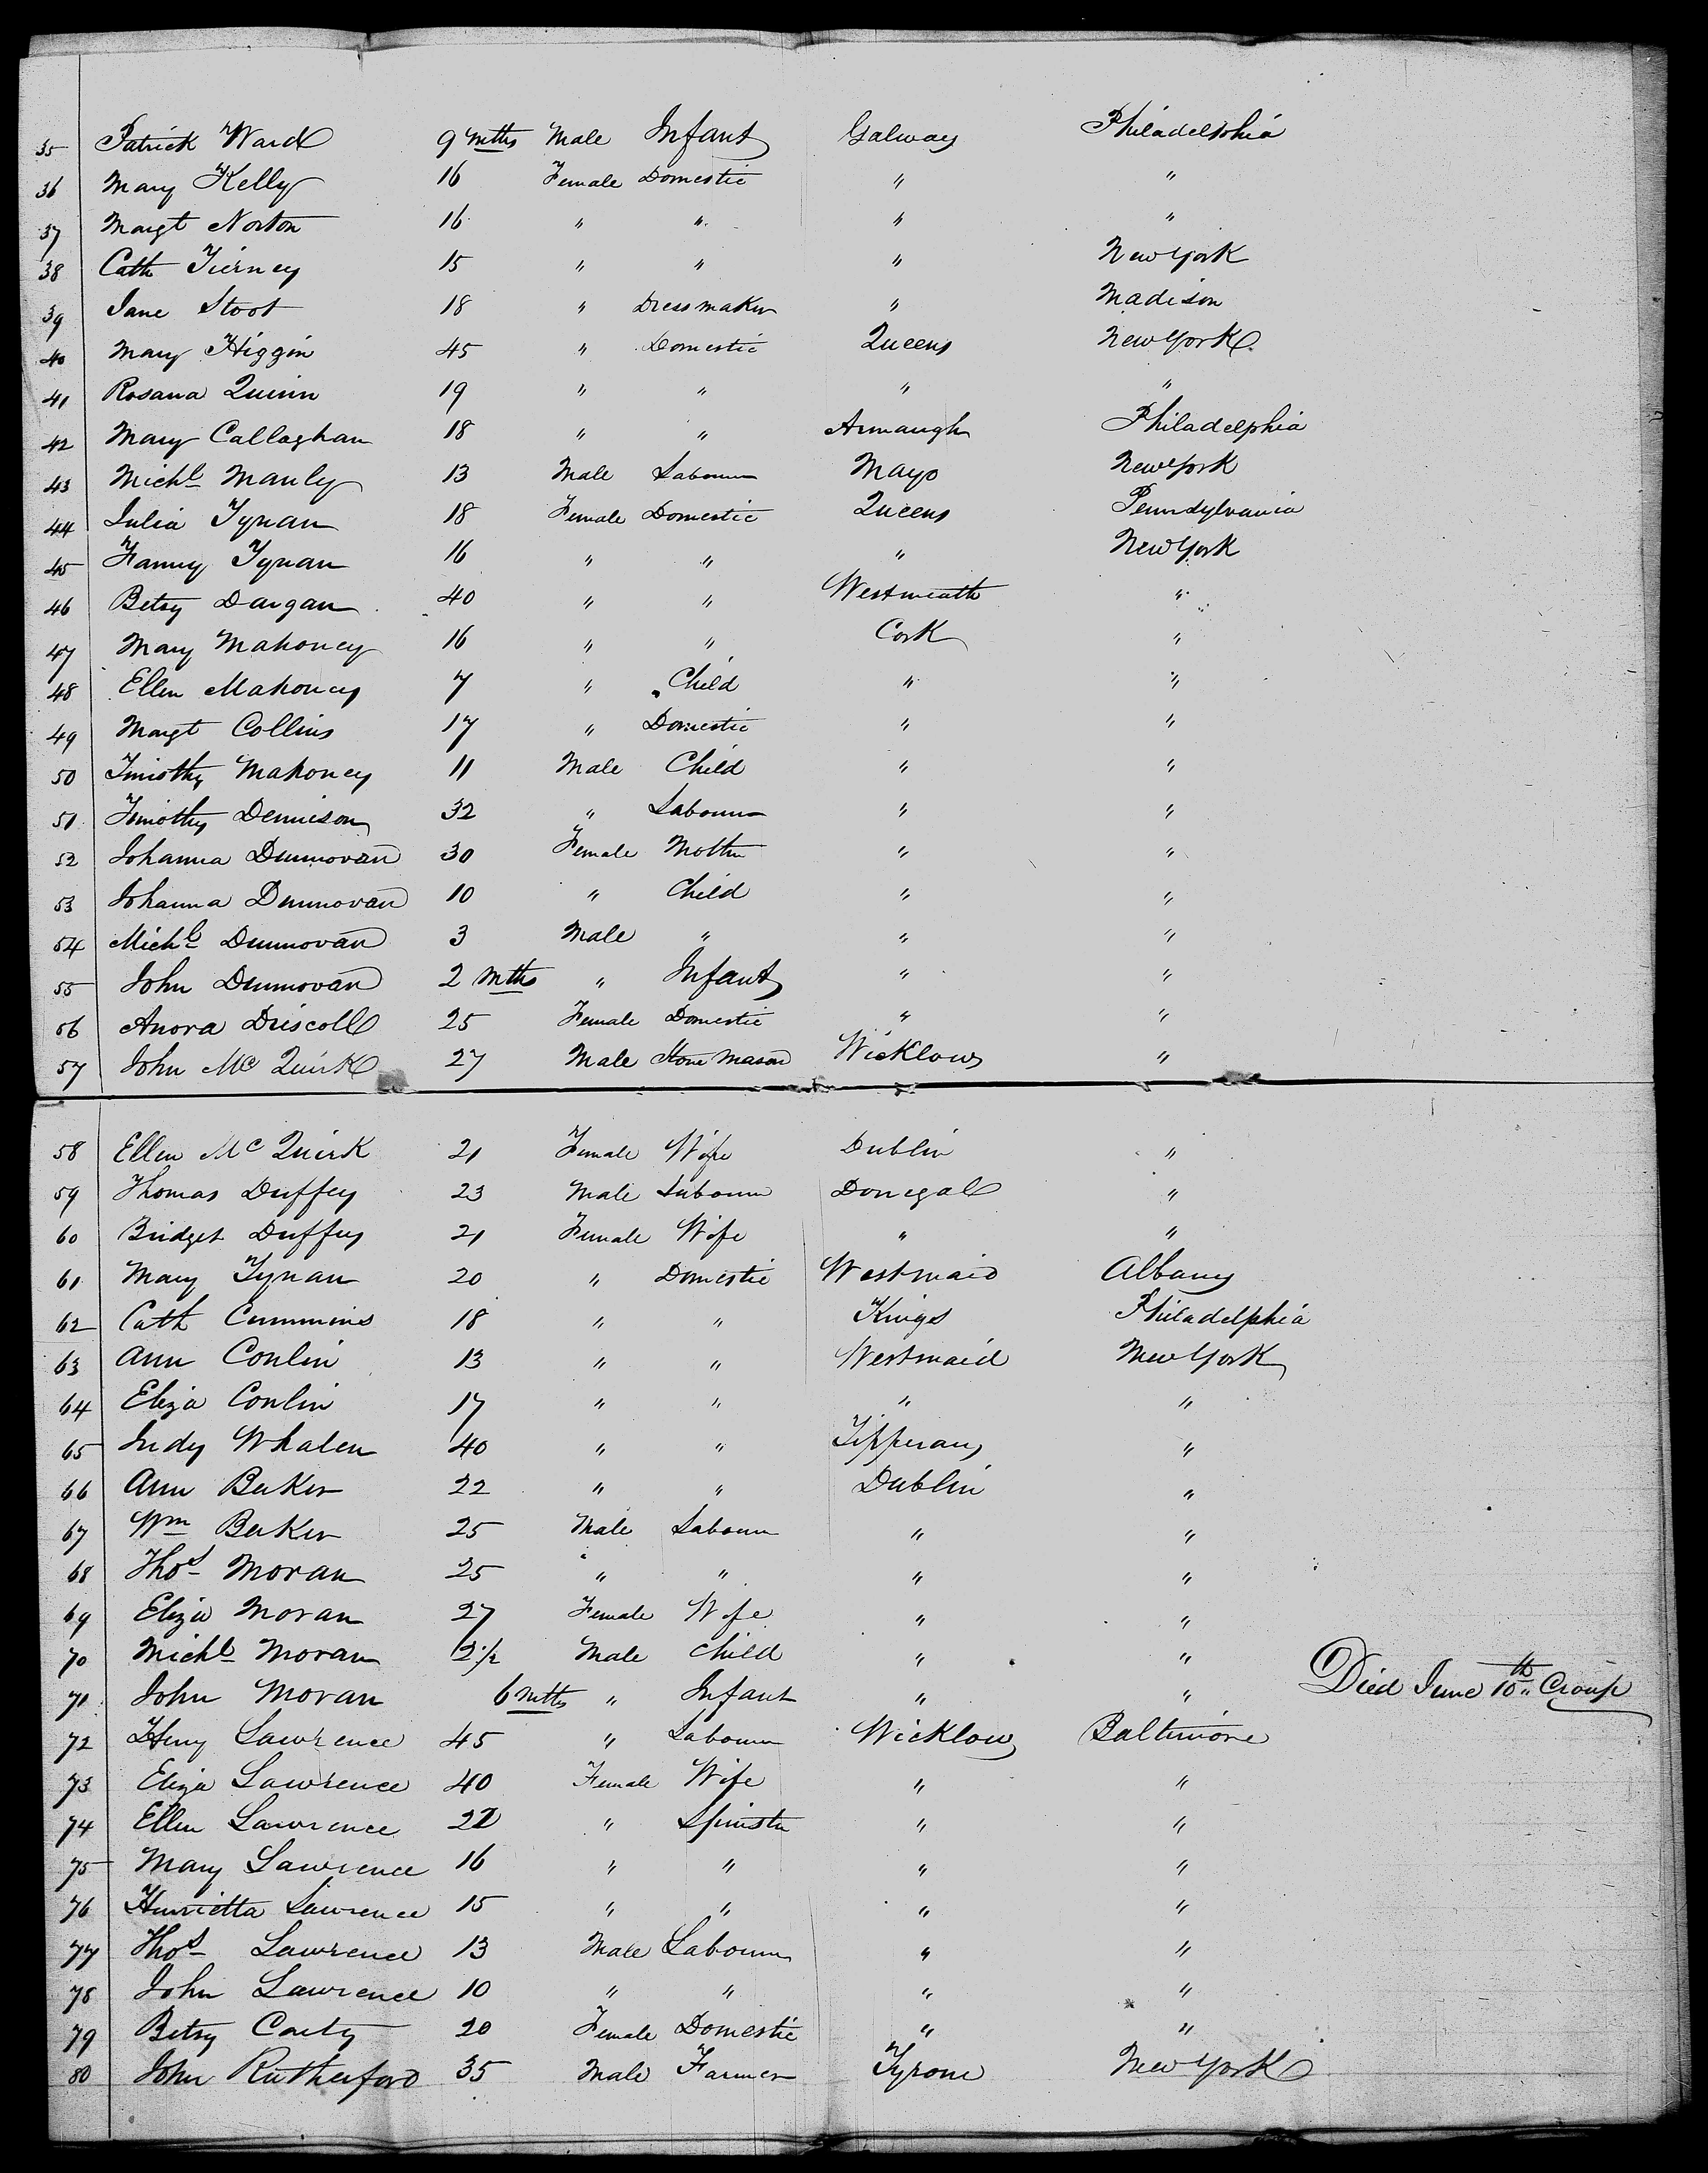 35 Patrick Ward 9 mths Male Infant Galway Philadelphia
36 Mary Kelly 16 Female Domestic " "
37 Margt Norton 16 " " " "
38 Cath Tierney 15 " " " New York
39 Jane Stoot 18 " Dressmaker " Madison
40 Mary Higgin 45 " Domestic Queens New York
41 Rosana Quinn 19 " " " "
42 Mary Callaghan 18 " " Armaugh Philadelphia
43 Michl Manly 13 Male Labourer Mayo New York
44 Julia Tynan 18 Female Domestic Queens Pennsylvania
45 Fanny Tynan 16 " " " New York
46 Betsy Dargan 40 " " Westmeath "
47 Mary Mahoney 16 " " Cork "
48 Ellen Mahoney 7 " Child " "
49 Margt Collins 17 " Domestic " "
50 Timothy Mahoney 11 Male Child " "
51 Timothy Dennison 32 " Labourer " "
52 Johanna Dunnovan 30 Female Mother " "
53 Johanna Dunnovan 10 " Child " "
54 Michl Dunnovan 3 Male " " "
55 John Dunnovan 2 mths " Infant " "
56 Anora Driscoll 25 Female Domestic " "
57 John McQuirk 27 Male Stone Mason Wicklow "
58 Ellen McQuirk 21 Female Wife Dublin "
59 Thomas Duffey 23 Male Labourer Donegal "
60 Bridget Duffey 21 Female Wife " "
61 Mary Tynan 20 " Domestic Westmaid Albany
62 Cath Cummins 18 " " Kings Philadelphia
63 Ann Conlin 13 " " Westmaid New York
64 Eliza Conlin 17 " " " "
65 Judy Whalen 40 " " Tipperary "
66 Ann Baker 22 " " Dublin "
67 Wm Baker 25 Male Labourer " "
68 Thos Moran 25 " " " "
69 Eliza Moran 27 Female Wife " "
70 Michl Moran 2½ Male Child " "
71 John Moran 6 mths " Infant " " Died June 10th Croup
72 Henry Lawrence 45 " Labourer Wicklow Baltimore
73 Eliza Lawrence 40 Female Wife " "
74 Ellen Lawrence " Spinster " "
75 Mary Lawrence 16 " " " "
76 Henrietta Lawrence 15 " " " "
77 Thos Lawrence 13 Male Labourer " "
78 John Lawrence 10 " " " "
79 Betsy Carty 20 Female Domestic " "
80 John Rutherford 35 Male Farmer Tyrone New York